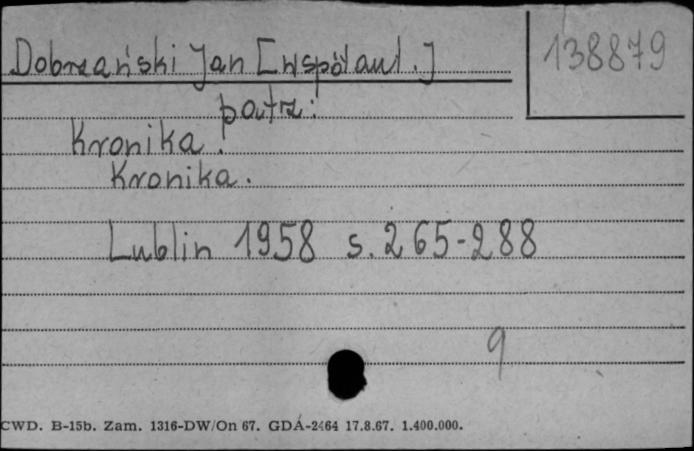 Dobrzański Jan [współaut.]
138879
patrz:
Kronika.
Kronika.
Lublin 1958 s. 265-288
9
CWD. B-15b. Zam. 1316-DW/On 67. GDA-2464 17.8.67. 1.400.000.